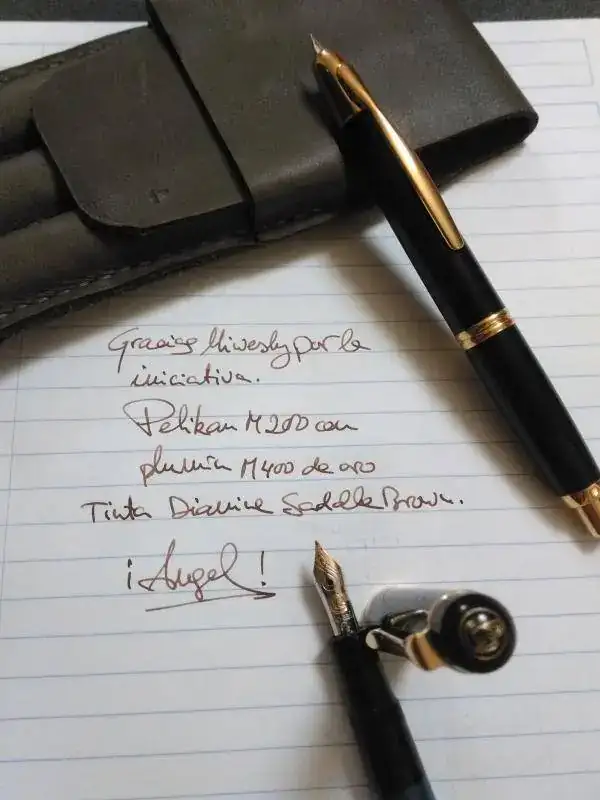 Gracias Miwesky por la
iniciativa.
Pelikan M200 con
plumín M400 de oro
Tinta Diamine Saddle Brown.
¡Angel!